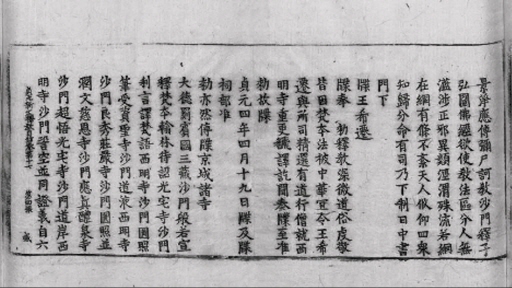 景淨應傳彌尸訶教沙門釋子
弘闡佛經欲使教法區分人無
濫涉正邪異類涇渭殊流若網
在綱有條不紊天人攸仰四衆
知歸分命有司乃下制曰中書
門下
牒王希遷
牒奉 勅釋教深微道俗虔敬
昔因梵本法被中華宜令王希
遷與所司精選有道行僧就西
明寺重更翻譯訖聞奏牒至准
勅故牒
貞元四年四月十九日牒及牒
祠部准
勅亦然傳牒京城諸寺
大德罽賓國三藏沙門般若宣
釋梵本翰林待詔光宅寺沙門
利言譯梵語西明寺沙門圓照
筆受資聖寺沙門道液西明寺
沙門良秀莊嚴寺沙門圓照並
潤文慈恩寺沙門應真醴泉寺
沙門超悟光宅寺沙門道岸西
明寺沙門空並同證義自六